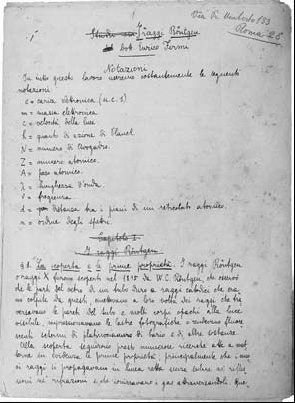 Via P. Umberto 133
Roma 25
Studi sui I raggi Röntgen
dott. Enrico Fermi
Notazioni
In tutto questo lavoro useremo costantemente le seguenti
notazioni:
e = carica elettronica (u.e.s.)
m = massa elettronica
c = velocità della luce
h = quanto di azione di Planck
N = numero di Avogadro.
Z = numero atomico.
A = peso atomico.
λ = lunghezza d'onda.
ν = frequenza
d = distanza tra i piani di un reticolato atomico.
n = ordine degli spettri.
Capitolo I
I raggi Röntgen
§ 1. La scoperta e le prime proprietà. I raggi Röntgen
o raggi X furono scoperti nel 1895 da W. C. Röntgen, che osservò
che le parti del vetro di un tubo a raggi catodici che era
no colpite da questi, emettevano a loro volta dei raggi che tra
versavano le pareti del tubo e molti corpi opachi alla luce
visibile, impressionavano le lastre fotografiche e rendevano fluore
scenti schermi di platinocianuro di bario e di altre sostanze.
Alla scoperta seguirono presto numerose ricerche atte a met
terne in evidenza le prime proprietà; principalmente che i nuo
vi raggi si propagavano in linea retta senza subire nè rifles
sioni nè rifrazioni e che ionizzavano i gas attraversandoli. Que